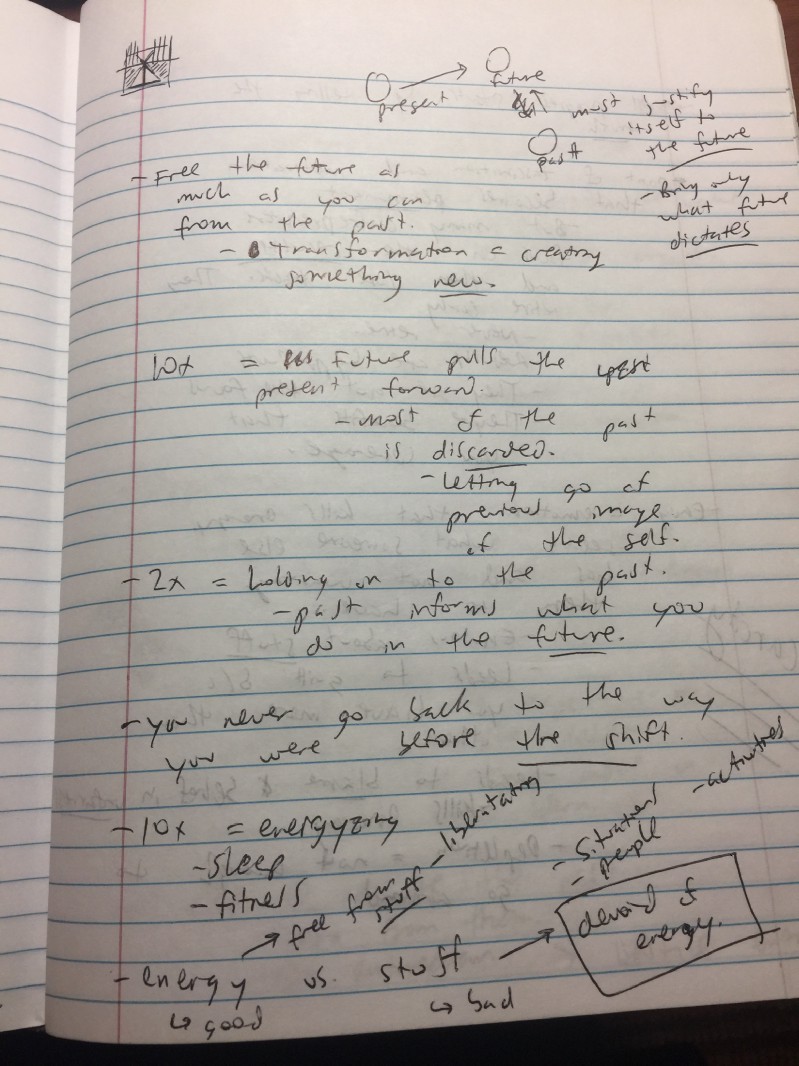 present
future
past
must justify
itself to
the future
- Bring only
what future
dictates
- Free the future as
much as you can
from the past.
- transformation = creating
something new.
10x = Future pulls the
present forward.
- most of the past
is discarded.
- letting go of
previous image
of the self.
- 2x = holding on to the past.
- past informs what you
do in the future.
- you never go back to the way
you were before the shift.
- 10x = energyzing
- sleep
- fitness
→ free from stuff
- liberatating
- situations
- people
- activities
- energy vs. stuff → devoid of
energy.
↳ good
↳ bad